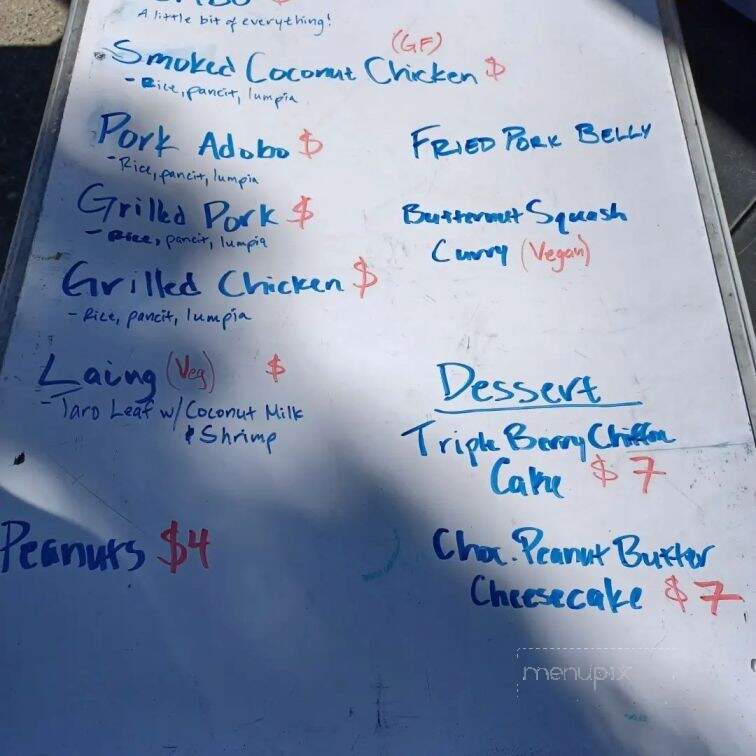 A little bit of everything!
(GF)
Smoked Coconut Chicken $
- Rice, pancit, lumpia
Pork Adobo $
- Rice, pancit, lumpia
Grilled Pork $
- Rice, pancit, lumpia
Grilled Chicken $
- Rice, pancit, lumpia
Laing (Veg) $
- Taro Leaf w/ Coconut Milk
& Shrimp
Peanuts $4
FRIED PORK BELLY
Butternut Squash
Curry (Vegan)
Dessert
Triple Berry Chiffon
Cake $7
Choc. Peanut Butter
Cheesecake $7
menupix